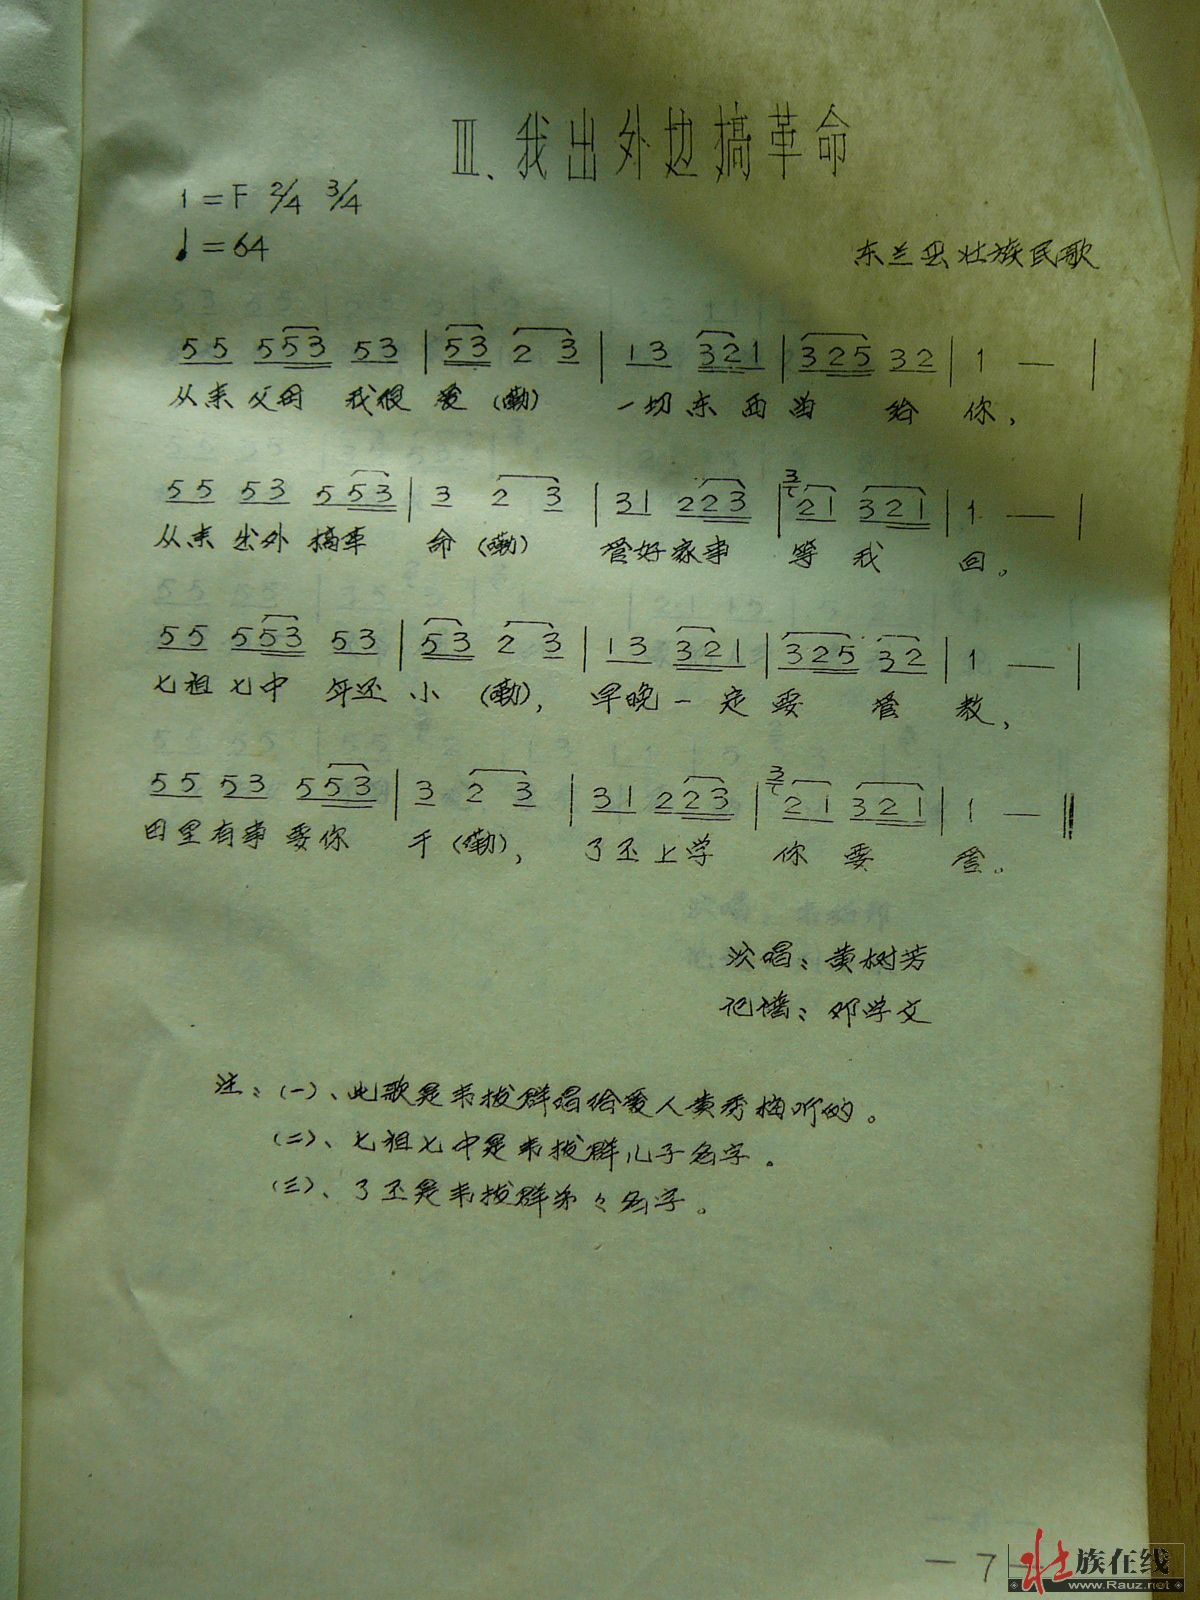 III、我出外边搞革命
1=F 2/4 3/4
♩=64
东兰县壮族民歌
55 553 53 | 53 2 3 | 13 321 | 325 32 | 1 — |
从来父母 我很 爱 (嘞) 一切东西当 给 你,
55 53 553 | 3 2 3 | 31 223 | 3 21 321 | 1 — |
从来出外 搞革 命 (嘞) 管好家事 等 我 回。
55 553 53 | 53 2 3 | 13 321 | 325 32 | 1 — |
七祖七中 年还 小 (嘞), 早晚一定要 管 教,
55 53 553 | 3 2 3 | 31 223 | 3 21 321 | 1 — ‖
田里有事要你 干 (嘞), 了丕上学 你 要 管。
演唱: 黄树芳
记谱: 邓学文
注: (一)、此歌是韦拔群唱给爱人黄秀梅听的。
(二)、七祖七中是韦拔群儿子名字。
(三)、了丕是韦拔群弟々名字。
— 7 —
壮族在线
www.Rauz.net